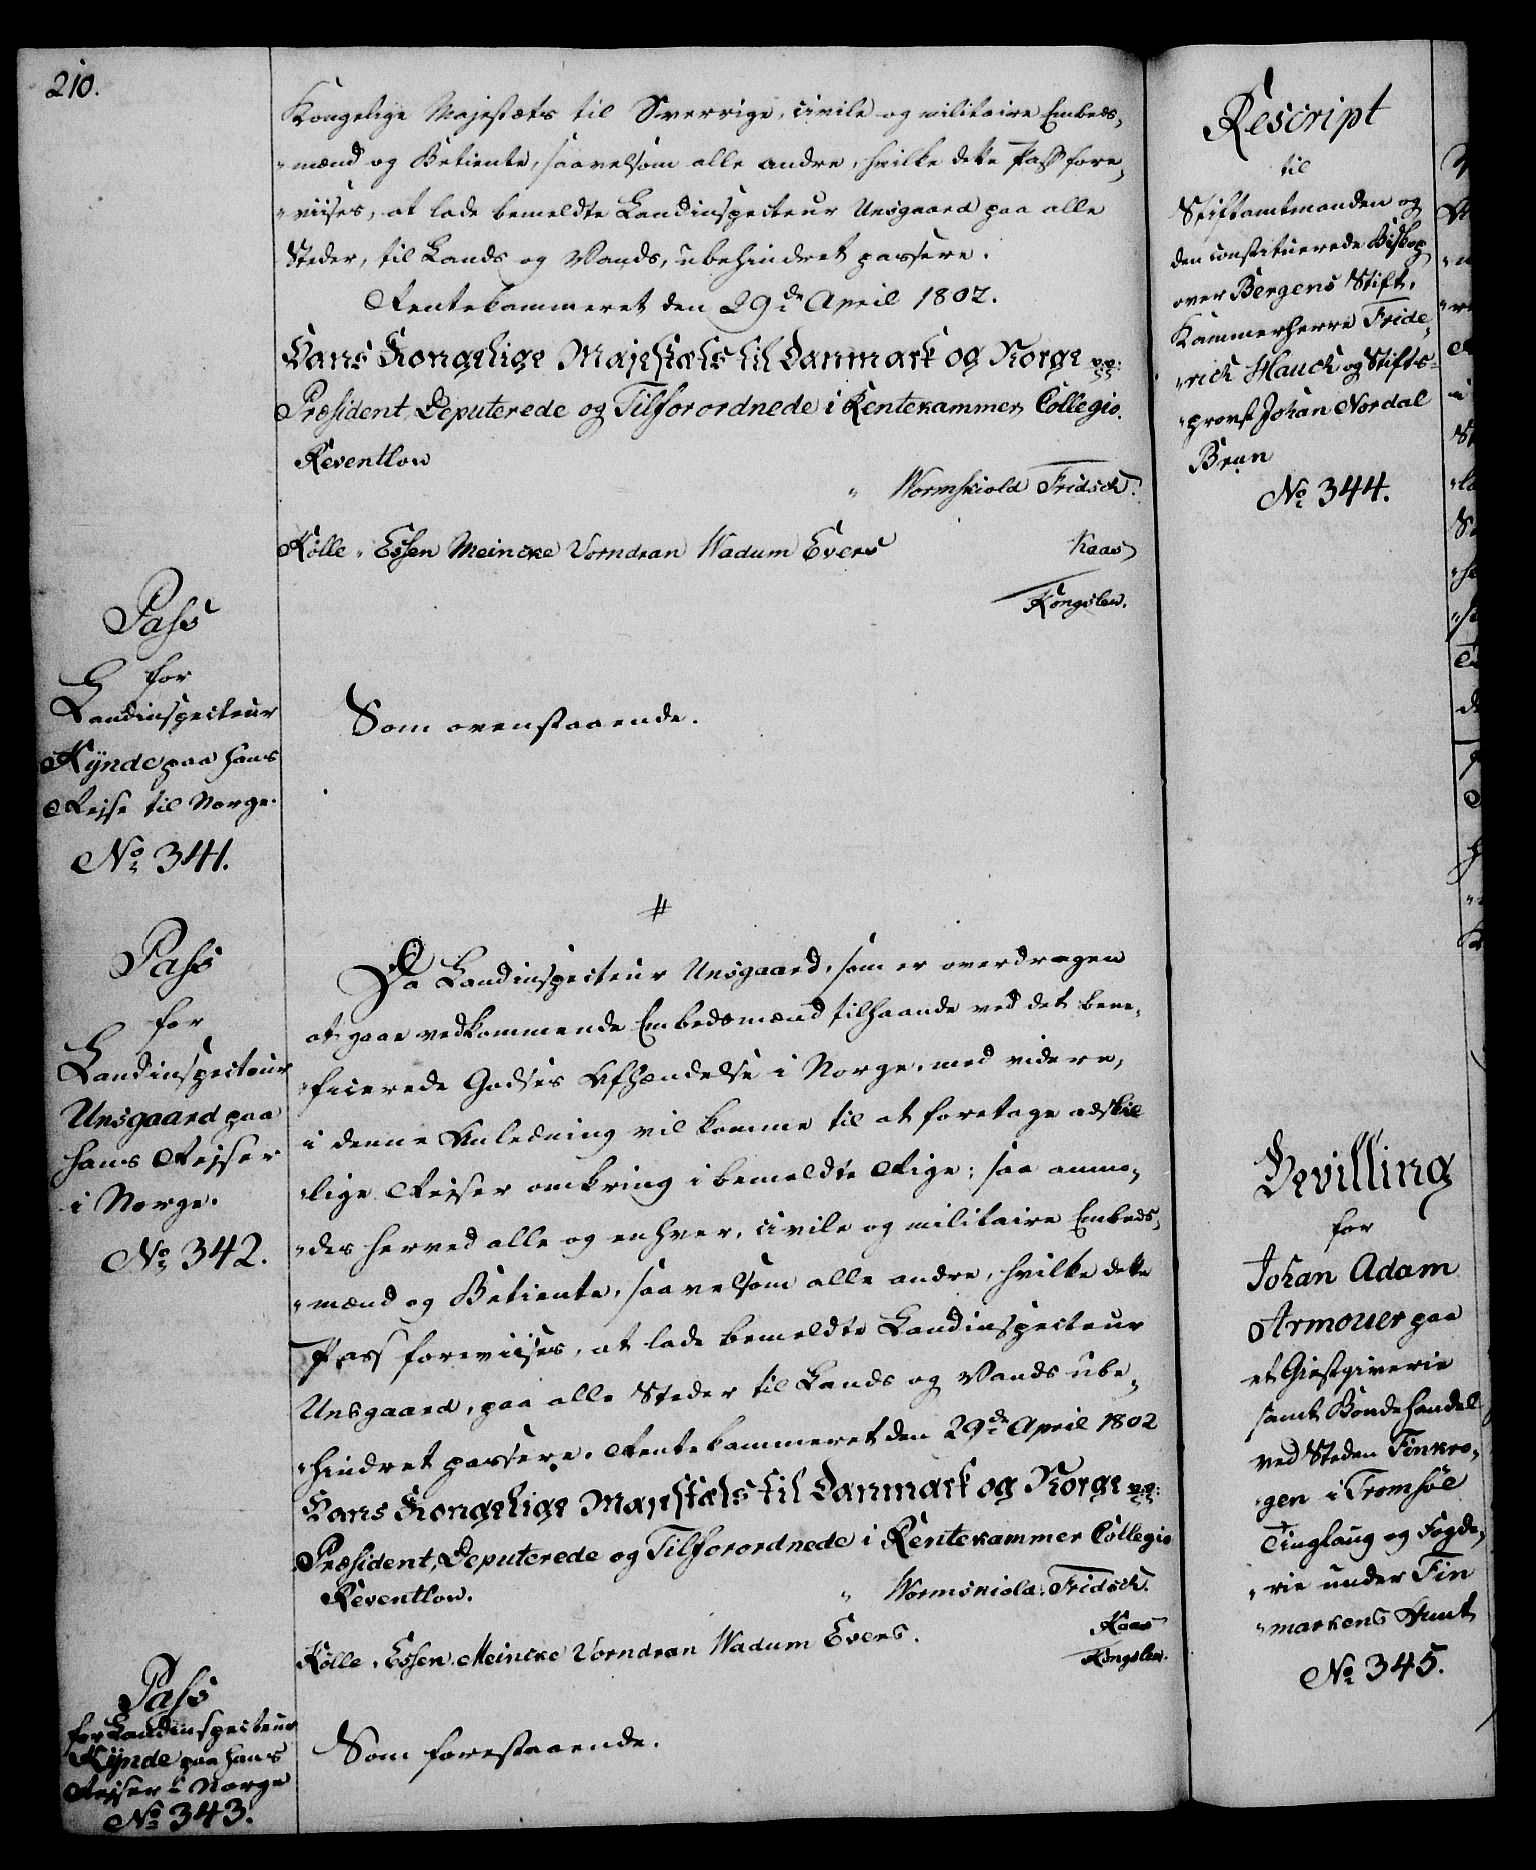 210.
Kongelige Majestæts til Sverrige, civile og militaire Embeds„
„mænd og Betiente, saavelsom alle andre, hvilke dette Pass fore„
„viises, at lade bemeldte Landinspecteur Unsgaard paa alle
Steder, til Lands og Vands, ubehindret passere.
Rentekammeret den 29de April 1802.
Hans Kongelige Majestæts til Danmark og Norge p.p:
Præsident, Deputerede og Tilforordnede i Rentekammer Collegio.
Reventlow
„ Wormskiold Fridsch.
Kølle „ Essen Meincke Vorndran Wadum Evers Kaas
Kongslew.
Pass
for
Landinspecteur
Kÿnde paa hans
Rejse til Norge.
No 341.
Som ovenstaaende.
#
Pass
for
Landinspecteur
Unsgaard paa
hans Rejser
i Norge.
No 342.
Da Landinspecteur Unsgaard, som er overdragen
at gaae vedkommende Embedsmænd tilhaande ved det bene„
„ficerede Godses Afhændelse i Norge, med videre,
i denne Anledning vil komme til at foretage adskil
„lige Rejser omkring i bemeldte Rige; saa anmo„
„des herved alle og enhver, civile og militaire Embeds„
„mænd og Betiente, saavelsom alle andre, hvilke dette
Pass foreviises, at lade bemeldte Landinspecteur
Unsgaard, paa alle Steder til Lands og Vands ube„
„hindret passere. Rentekammeret den 29de April 1802
Hans Kongelige Majestæts til Danmark og Norge p.p:
Præsident, Deputerede og Tilforordnede i Rentekammer Collegio
Reventlow.
„ Wormskiold. Fridsch.
Kølle „ Essen. Meincke Vorndran Wadum Evers. Kaas
Kongslew.
Pass
for Landinspecteur
Kÿnde paa hans
Rejser i Norge
No 343.
Som forestaaende.
Rescript
til
Stiftamtmanden og
den constituerede Biskop
over Bergens Stift,
Kammerherre Fride„
„rick Hauch og Stifts„
„provst Johan Nordal
Brun
No 344.
Bevilling
for
Johan Adam
Armouer paa
et Giestgiverie
samt Bondehandel
ved Steden Finkro„
„gen i Tromsöe
Tinglaug og Fogde„
„rie under Fin
„markens Amt
No 345.